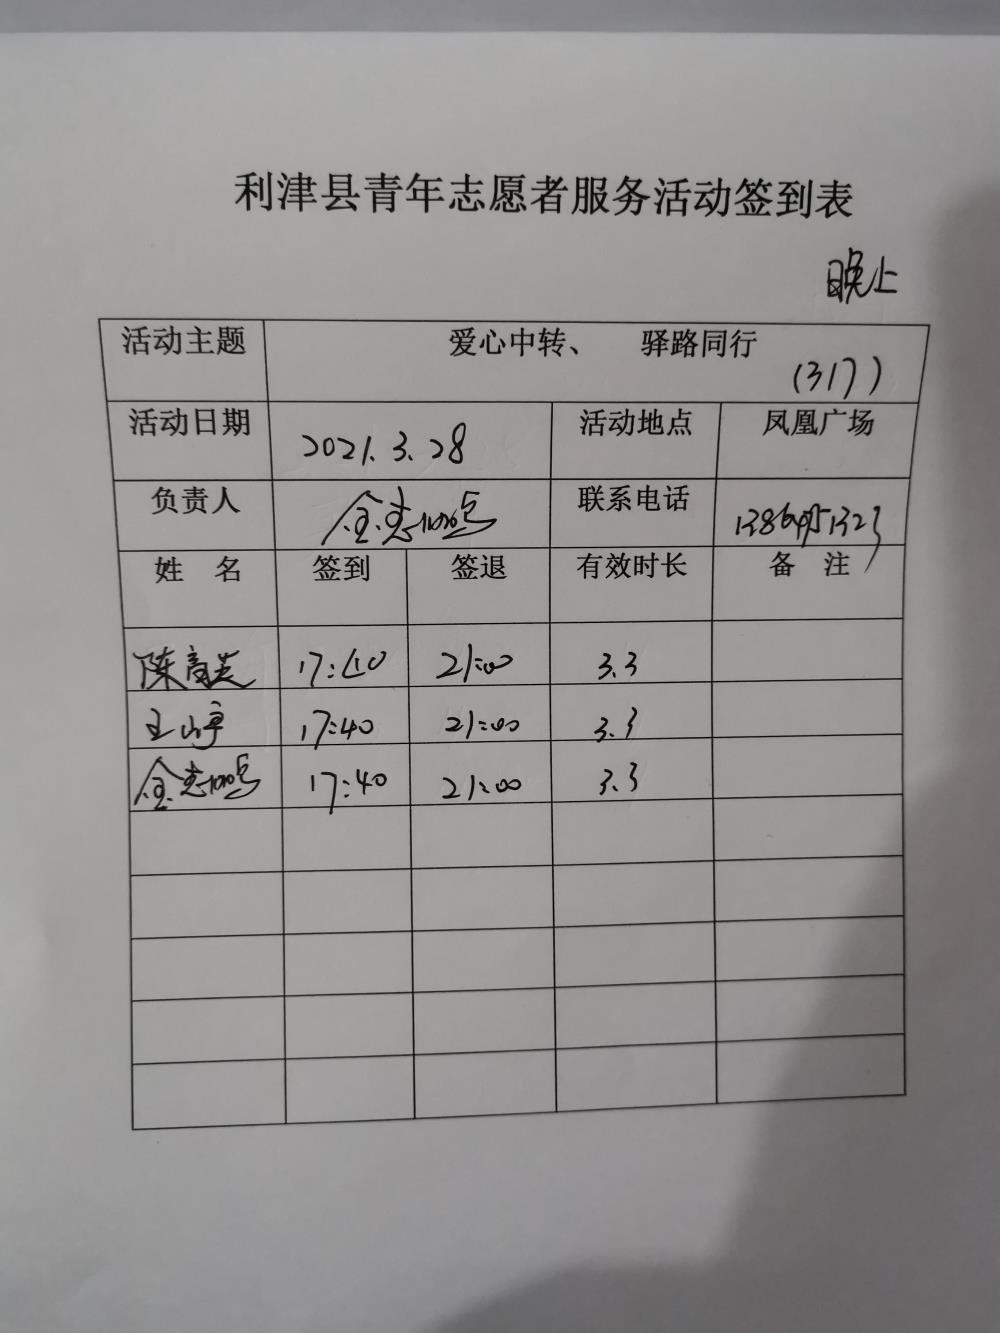 利津县青年志愿者服务活动签到表
晚上
活动主题 爱心中转、 驿路同行
(317)
活动日期 2021.3.28 活动地点 凤凰广场
负责人 联系电话
姓 名 签到 签退 有效时长 备 注
陈 17:40 21:00 3.3
王 17:40 21:00 3.3
17:40 21:00 3.3